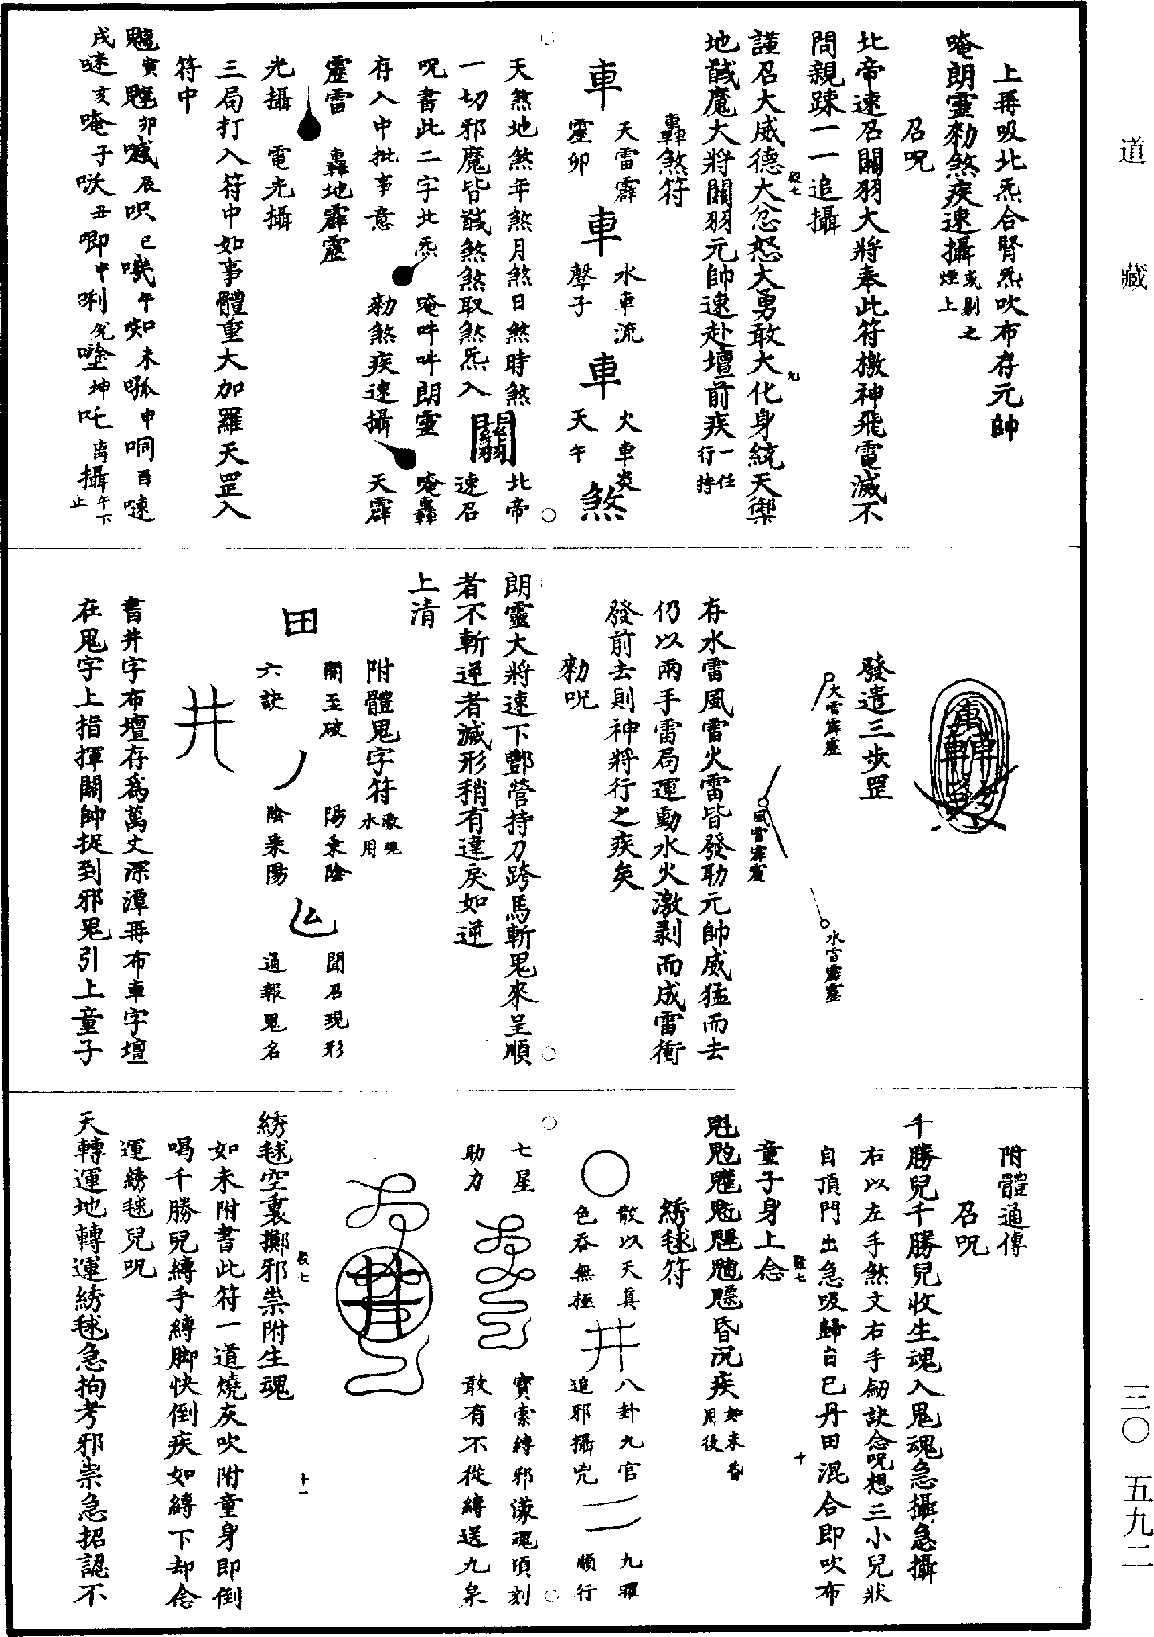 道藏
三〇 五九二
上再吸北炁合腎炁吹布存元帥
唵朗靈勑煞疾速攝或剔之煙上
召咒
北帝速召關羽大將奉此符檄神飛電滅不
問親踈一一追攝
謹召大威德大忿怒大勇敢大化身統天禦
地馘魔大將關羽元帥速赴壇前疾一任行持
轟煞符
車 天雷霹靂卯
車 水車流聲子
車 火車炎天午
煞
天煞地煞年煞月煞日煞時煞
一切邪魔皆馘煞煞取煞炁入
關
北帝速召
咒書此二字北炁
唵吽吽朗靈
唵轟
存入中批事意
勑煞疾速攝
天霹
靂雷
轟地霹靂
光攝
電光攝
三局打入符中如事體重大加羅天罡入
符中
戌 亥唵子 丑唧
發遣三步罡
火雷霹靂
風雷霹靂
水雷霹靂
存水雷風雷火雷皆發劯元帥威猛而去
仍以兩手雷局運動水火激剥而成雷衝
發前去則神將行之疾矣
勑咒
朗靈大將速下酆營持刀跨馬斬鬼來呈順
者不斬逆者滅形稍有違戾如逆
上清
附體鬼字符
田
開至破
六訣
陽乘陰
陰乘陽
聞召現形
通報鬼名
井
書井字布壇存爲萬丈深潭再布車字壇
在鬼字上指揮關帥捉到邪鬼引上童子
附體通傳
召咒
千勝兒千勝兒收生魂入鬼魂急攝急攝
右以左手煞文右手劒訣念咒想三小兒狀
自頂門出急吸歸自己丹田混合即吹布
童子身上念
昏沉疾如未昏用後
綉毬符
散以天真
色吞無極
井
八卦九宫
追邪攝兇
九曜
順行
七星
助力
寳索縛邪濛魂頃刻
敢有不從縛送九泉
綉毬空裏擲邪祟附生魂
如未附書此符一道燒灰吹附童身即倒
喝千勝兒縛手縛脚快倒疾如縛下却念
運綉毬兒咒
天轉運地轉運綉毬急拘考邪祟急招認不